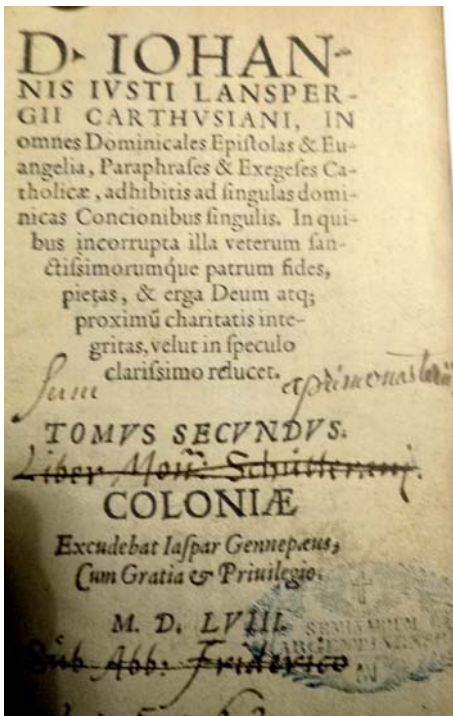 D. IOHAN-
NIS IVSTI LANSPER-
GII CARTHVSIANI, IN
omnes Dominicales Epiſtolas & Eu-
angelia, Paraphraſes & Exegeſes Ca-
tholicæ, adhibitis ad ſingulas domi-
nicas Concionibus ſingulis. In qui-
bus incorrupta illa veterum ſan-
ctiſsimorumq́ue patrum fides,
pietas, & erga Deum atq;
proximũ charitatis inte-
gritas, velut in ſpeculo
clariſsimo relucet.
Sum
TOMVS SECVNDVS.
Liber Mon: Schutterani.
COLONIÆ
Excudebat Iaſpar Gennepæus,
Cum Gratia & Priuilegio.
M. D. LVIII.
SEMINARIUM
ARGENTINENSE
Sub Abb: Friderico